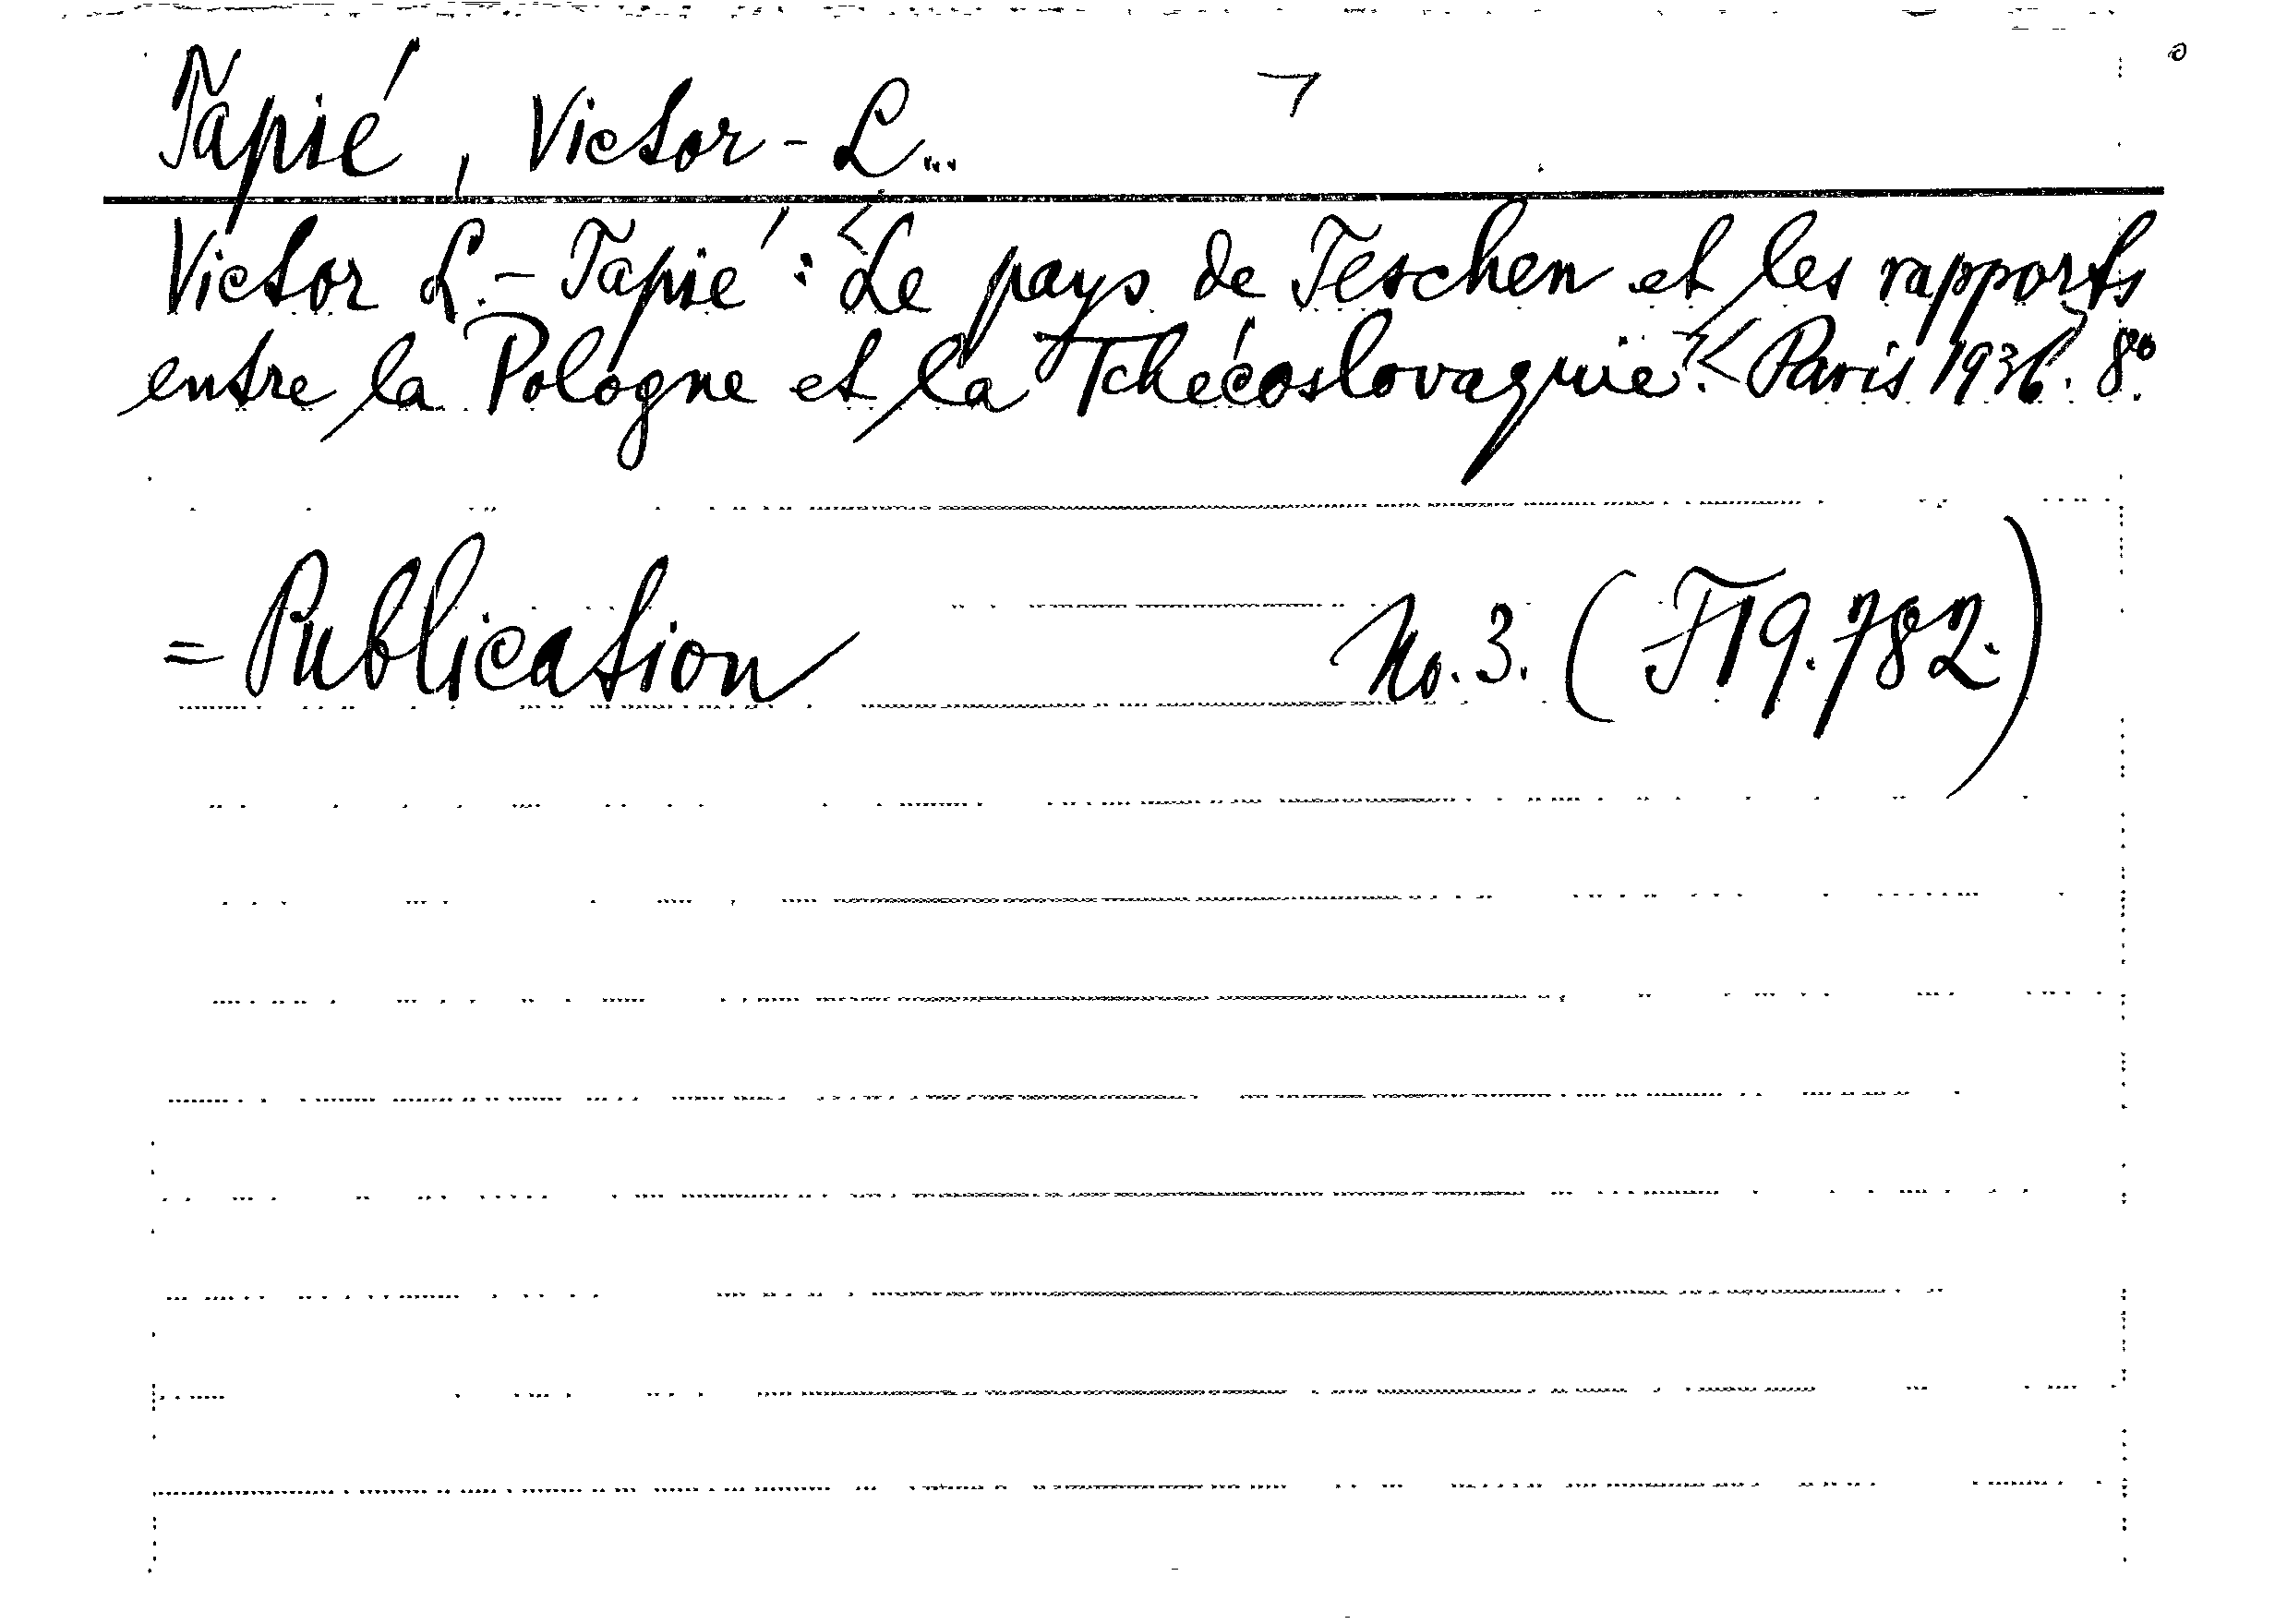 Tapié, Victor-L...
Victor L.-Tapié: Le pays de Teschen et les rapports
entre la Pologne et la Tchécoslovaquie. Paris 1936. 8°.
= Publication No. 3. (F 19.782.)